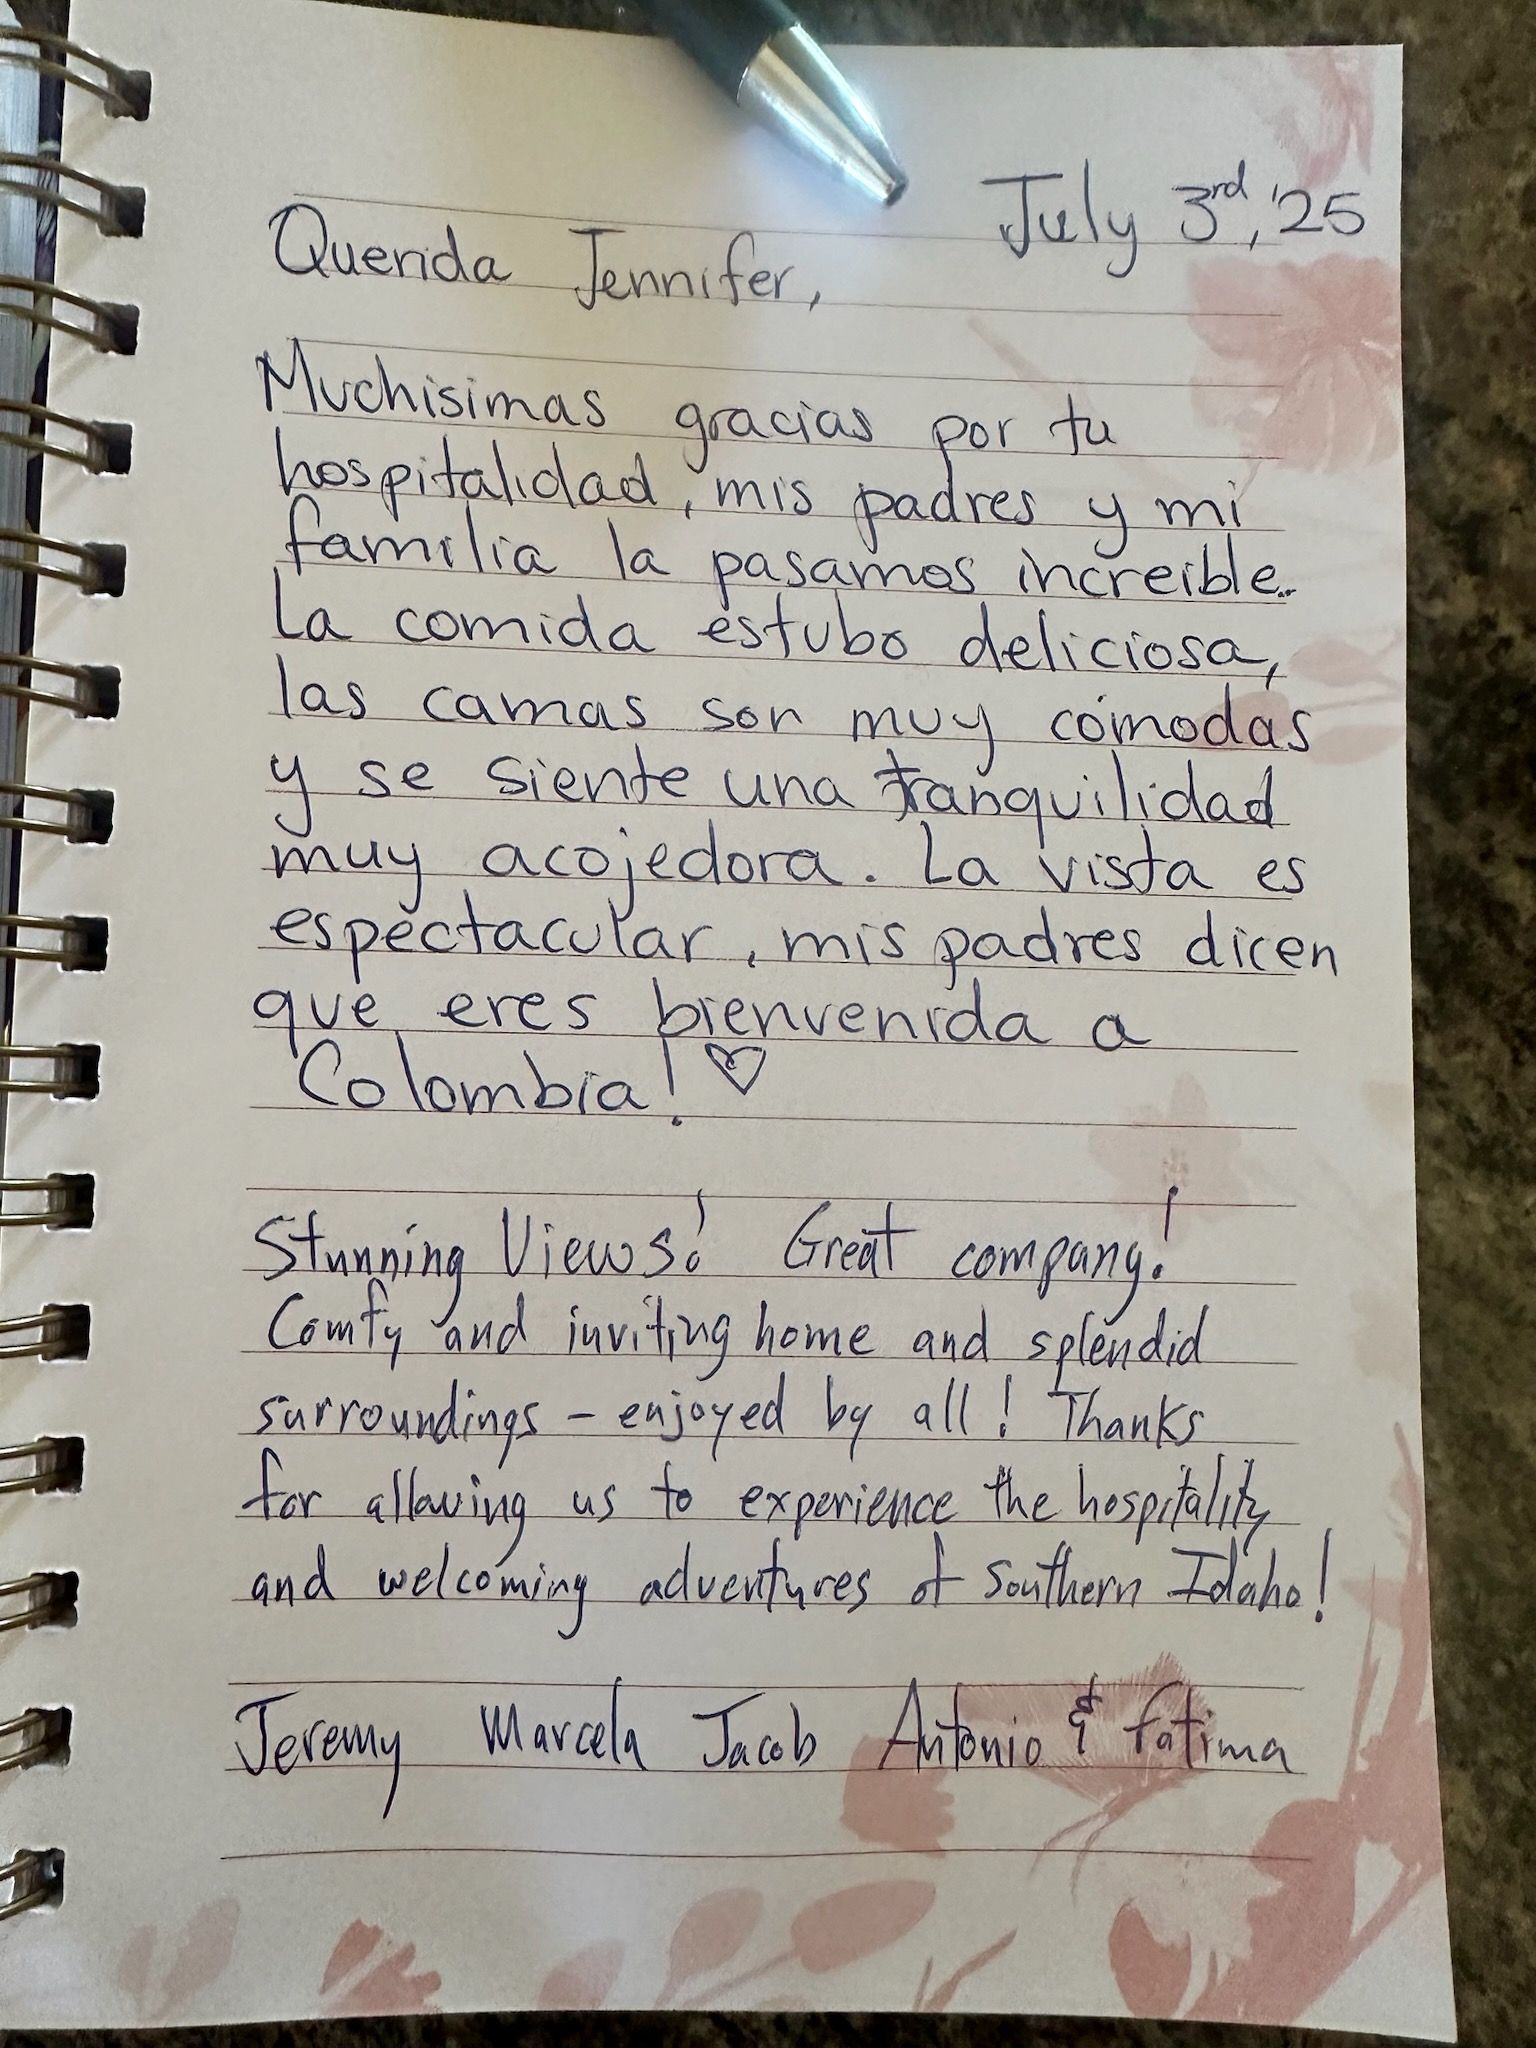 July 3rd, '25
Querida Jennifer,
Muchisimas gracias por tu
hospitalidad, mis padres y mi
familia la pasamos increible..
La comida estubo deliciosa,
las camas son muy cómodas
y se siente una tranquilidad
muy acojedora. La vista es
espectacular, mis padres dicen
que eres bienvenida a
Colombia! ♡
Stunning Views! Great company!
Comfy and inviting home and splendid
surroundings – enjoyed by all! Thanks
for allowing us to experience the hospitality
and welcoming adventures of Southern Idaho!
Jeremy Marcela Jacob Antonio & Fatima